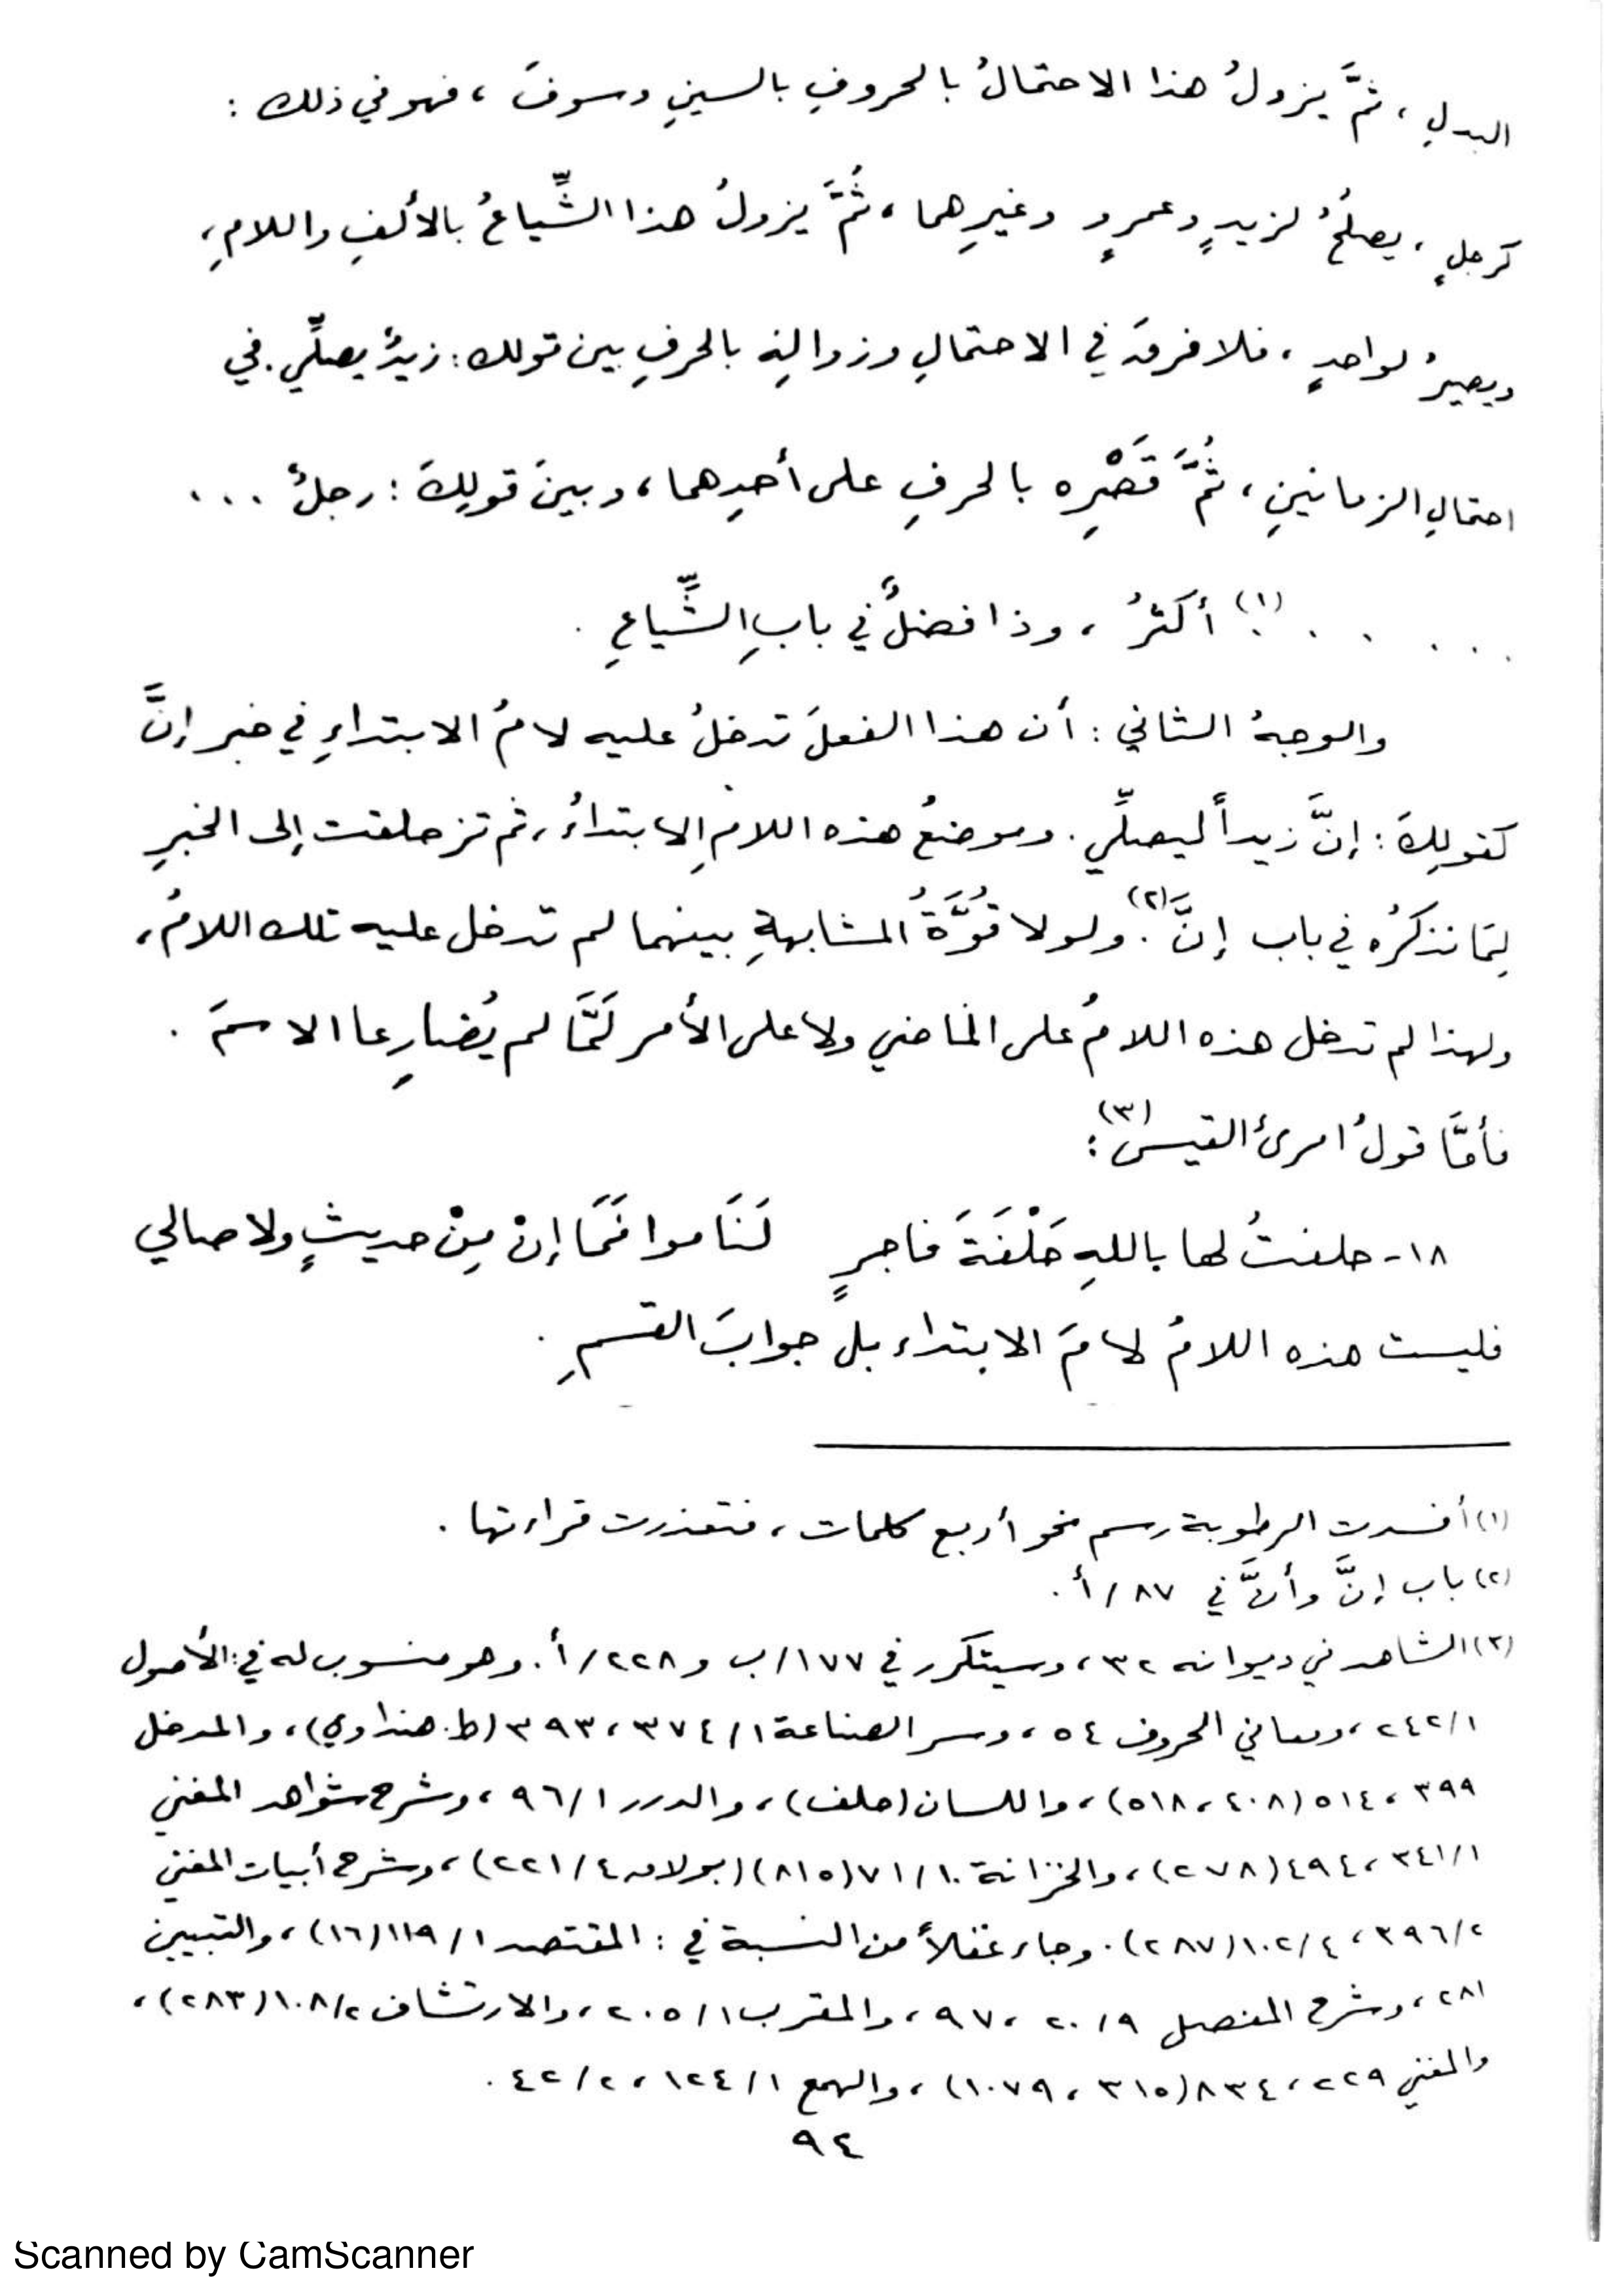 البدلِ ، ثمَّ يزولُ هذا الاحتمالُ بالحروفِ بالسينِ وسوفَ ، فهو في ذلك :
كرجلٍ ، يصلحُ لزيدٍ وعمرٍو وغيرِهما ، ثُمَّ يزولُ هذا الشِّياعُ بالألفِ واللامِ ،
ويصيرُ لواحدٍ ، فلا فرقَ في الاحتمالِ وزوالِهِ بالحرفِ بين قولك : زيدٌ يصلِّي . في
احتمالِ الزمانينِ ، ثُمَّ قَصْرِه بالحرفِ على أحدِهما ، وبينَ قولِكَ : رجلٌ ...
. . . . . . (١) أكثرُ ، وذا فضلٌ في بابِ الشِّياعِ .
والوجهُ الثاني : أن هذا الفعلَ تدخلُ عليه لامُ الابتداءِ في خبر إنَّ
كقولِكَ : إنَّ زيداً ليصلِّي . وموضعُ هذه اللامِ الابتداءُ ، ثم تزحلقت إلى الخبرِ
لِمَا نذكرُه في باب إنَّ (٢) . ولولا قوَّةُ المشابهةِ بينهما لم تدخل عليه تلك اللامُ ،
ولهذا لم تدخل هذه اللامُ على الماضي ولا على الأمر لَمَّا لم يُضارِعا الاسمَ .
فأمَّا قولُ امرئ القيس (٣) :
١٨ - حلفتُ لها باللهِ حَلْفَةَ فاجرٍ لَنَاموا فَمَا إنْ مِنْ حديثٍ ولا صالي
فليست هذه اللامُ لامَ الابتداء بل جوابَ القسمِ .
(١) أفسدت الرطوبة رسم نحو أربع كلمات ، فتعذرت قراءتها .
(٢) باب إنَّ وأنَّ في ٨٧ / أ .
(٣) الشاهد في ديوانه ٣٢ ، وسيتكرر في ١٧٧ / ب و ٢٢٨ / أ . وهو منسوب له في : الأصول
١ / ٢٤٢ ، ومعاني الحروف ٥٤ ، وسر الصناعة ١ / ٣٧٤ ، ٣٩٣ (ط. هنداوي) ، والمدخل
٣٩٩ ، ٥١٤ (٤٠٨ ، ٥١٨) ، واللسان (حلف) ، والدرر ١ / ٩٦ ، وشرح شواهد المغني
١ / ٣٤١ ، ٤٩٤ (٢٧٨) ، والخزانة ١٠ / ٧١ (٨١٥) (بولاق ٤ / ٢٢١) ، وشرح أبيات المغني
٢ / ٣٩٦ ، ٤ / ١٠٢ (٢٨٧) . وجاء غفلاً من النسبة في : المقتصد ١ / ١١٩ (١٦) ، والتبيين
٢٨١ ، وشرح المفصل ٩ / ٢٠ ، ٩٧ ، والمقرب ١ / ٢٠٥ ، والارتشاف ٢ / ١٠٨ (٢٨٣) ،
والمغني ٢٢٩ ، ٨٣٤ (٣١٥ ، ١٠٧٩) ، والهمع ١ / ١٢٤ ، ٢ / ٤٢ .
٩٤
Scanned by CamScanner